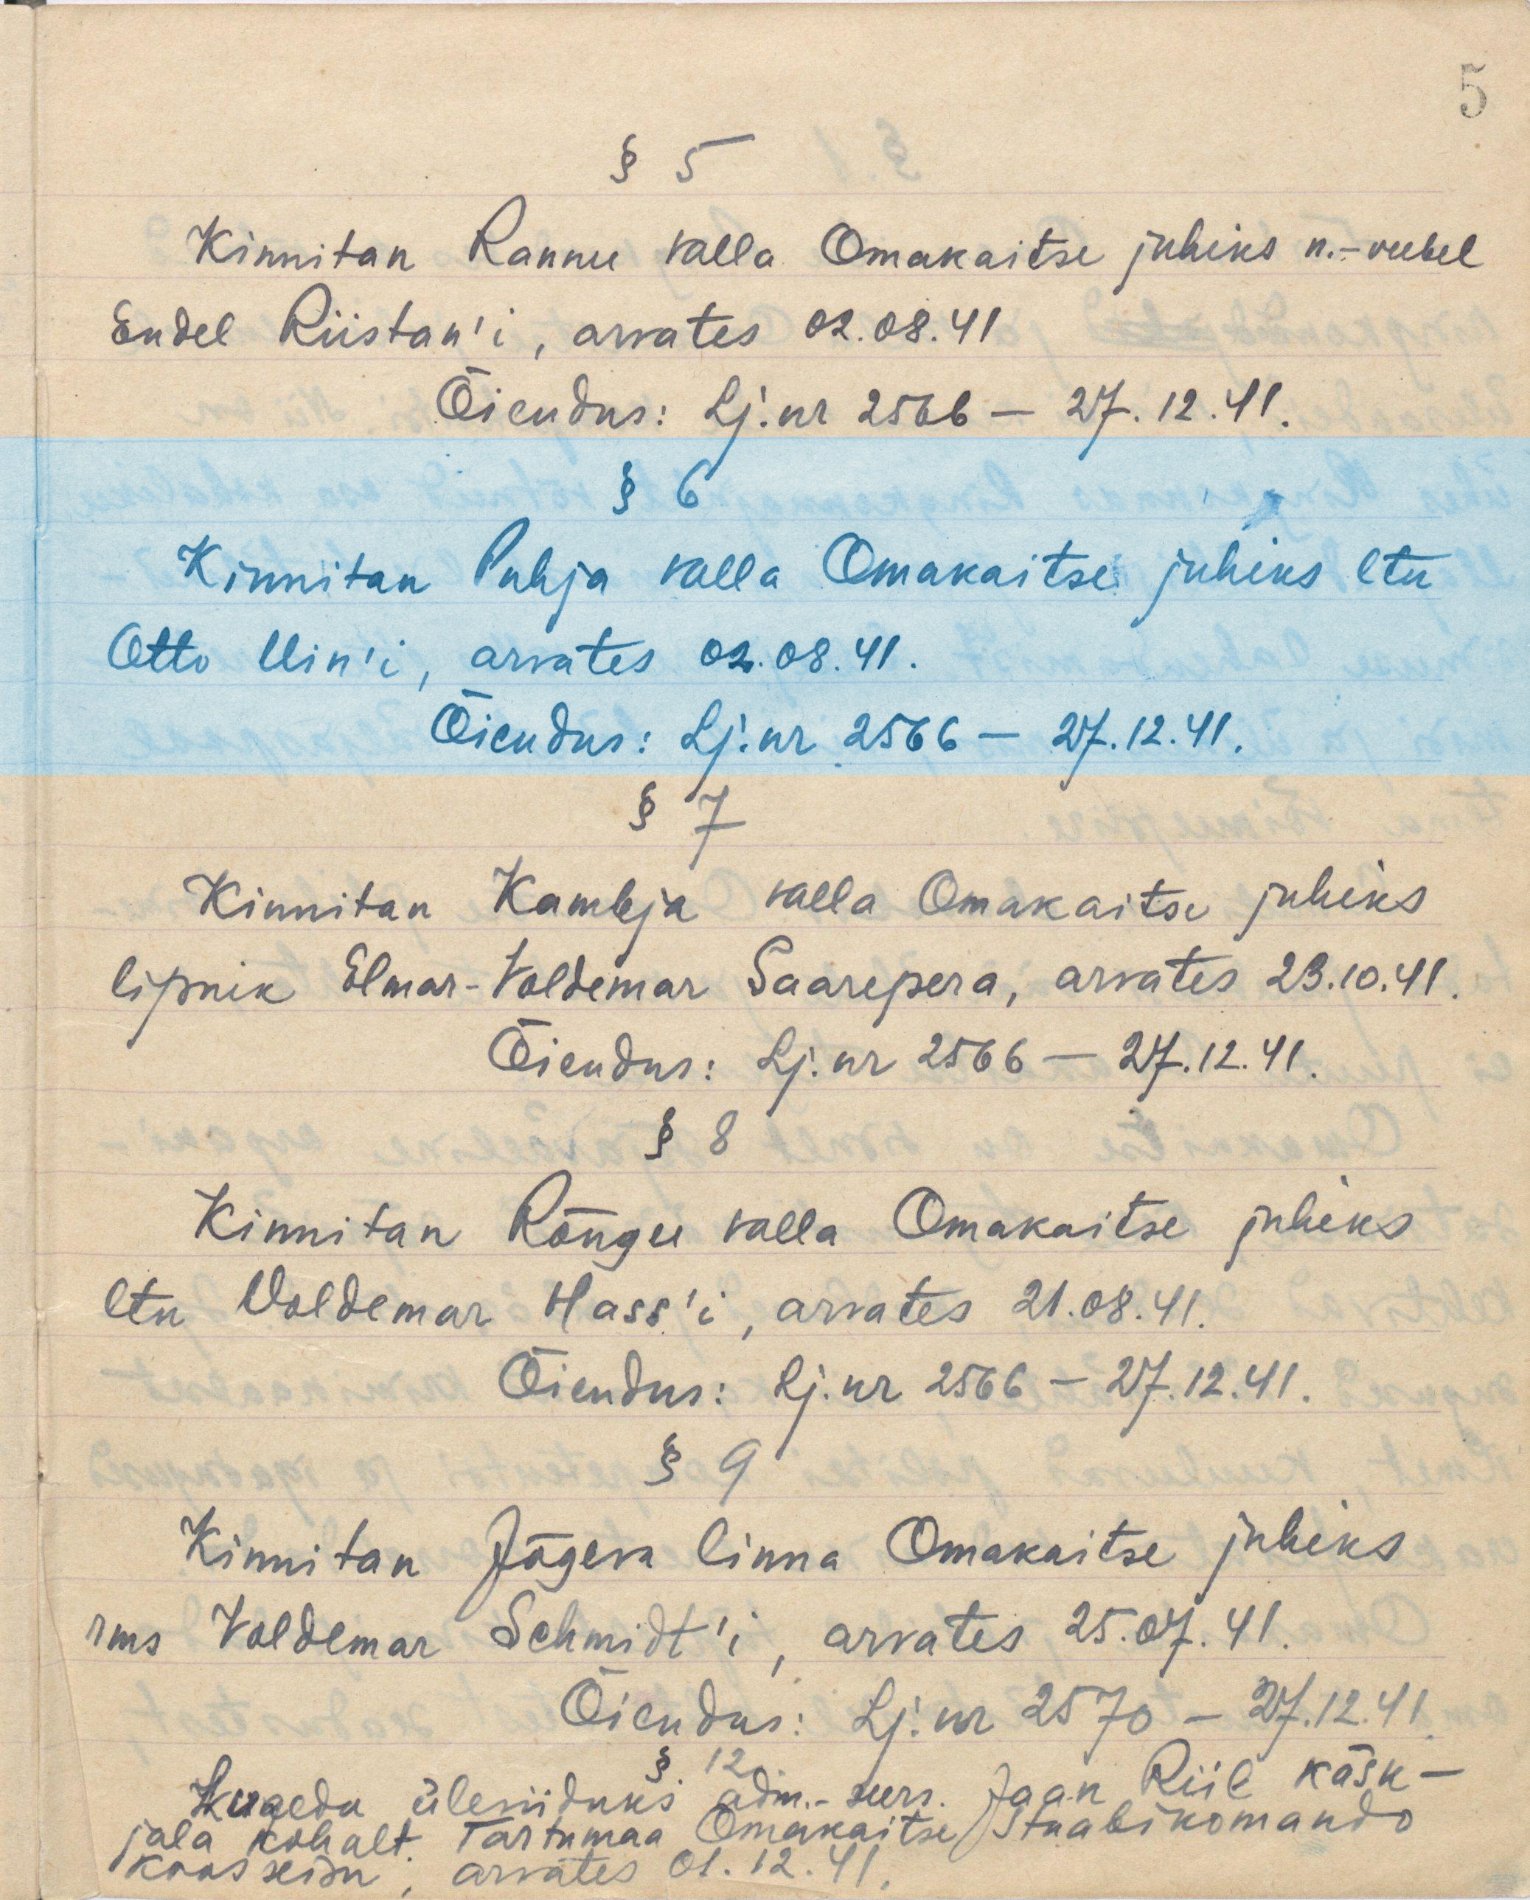 5
§ 5
Kinnitan Rannu valla Omakaitse juhiks n.-veebel
Endel Riistan'i, arvates 02.08.41
Õiendus: Lj. nr 2566 — 27.12.41.
§ 6
Kinnitan Puhja valla Omakaitse juhiks ltn
Otto Uin'i, arvates 02.08.41.
Õiendus: Lj. nr 2566 — 27.12.41.
§ 7
Kinnitan Kambja valla Omakaitse juhiks
lipnik Elmar-Voldemar Saarepera, arvates 23.10.41.
Õiendus: Lj. nr 2566 — 27.12.41.
§ 8
Kinnitan Rõngu valla Omakaitse juhiks
ltn Voldemar Hass'i, arvates 21.08.41.
Õiendus: Lj. nr 2566 — 27.12.41.
§ 9
Kinnitan Jõgeva linna Omakaitse juhiks
rms Voldemar Schmidt'i, arvates 25.07.41.
Õiendus: Lj. nr 2570 — 27.12.41.
§ 12
Lugeda üleviiduks adm.-seers. Jaan Riil käsk-
jala kohalt Tartumaa Omakaitse Staabikomando
koosseisu, arvates 01.12.41.